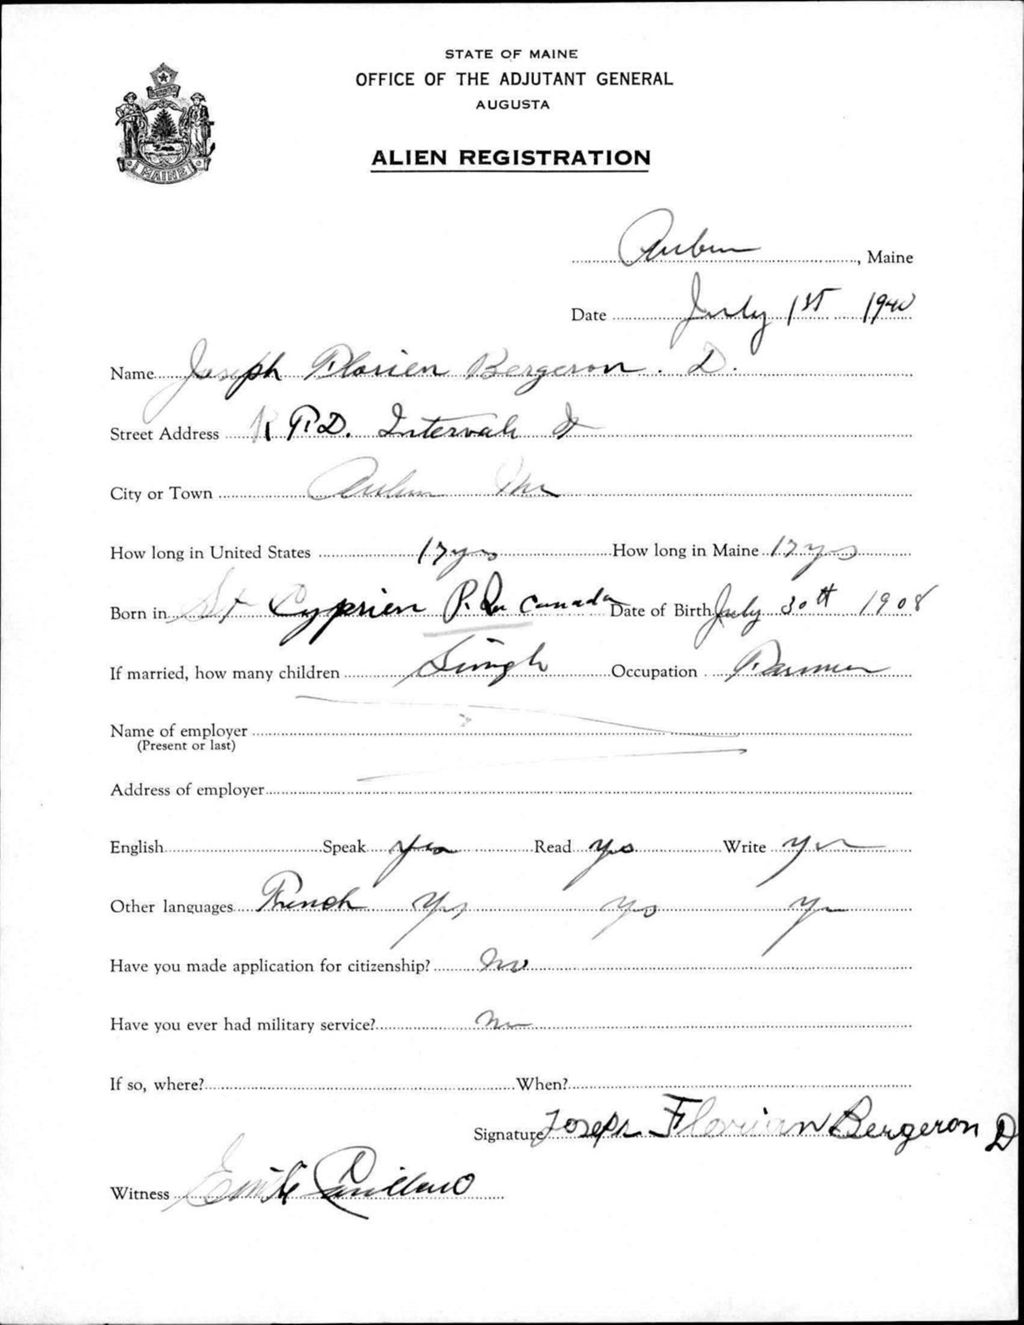 STATE OF MAINE
OFFICE OF THE ADJUTANT GENERAL
AUGUSTA
ALIEN REGISTRATION
MAINE
Auburn, Maine
Date July 1st 1940
Name Joseph Florien Bergeron. D.
Street Address R F.D. Intervale St
City or Town Auburn Me
How long in United States 17 yrs How long in Maine 17 yrs
Born in St Cyprien P. Qu Canada Date of Birth July 30th 1908
If married, how many children Single Occupation Farmer
Name of employer
(Present or last)
Address of employer
English Speak yes Read yes Write yes
Other languages French yes yes yes
Have you made application for citizenship? No
Have you ever had military service? No
If so, where? When?
Signature Joseph Florian Bergeron D
Witness Emile